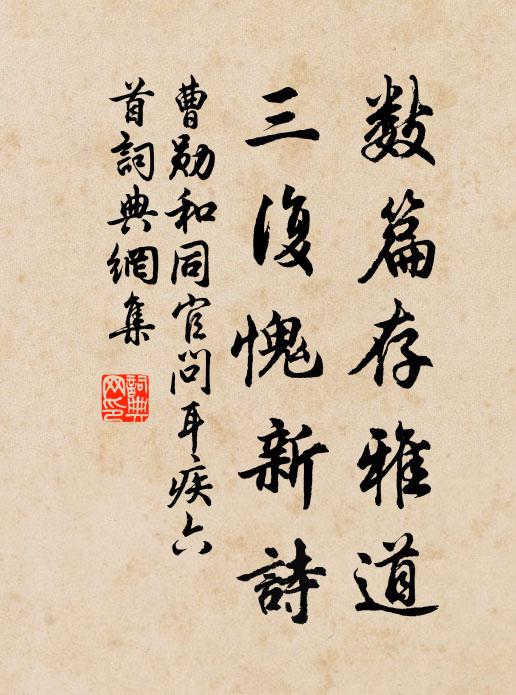 数篇存雅道
三復愧新詩
曹勛和同官問耳疾六
首詞典網集
詞典
网印